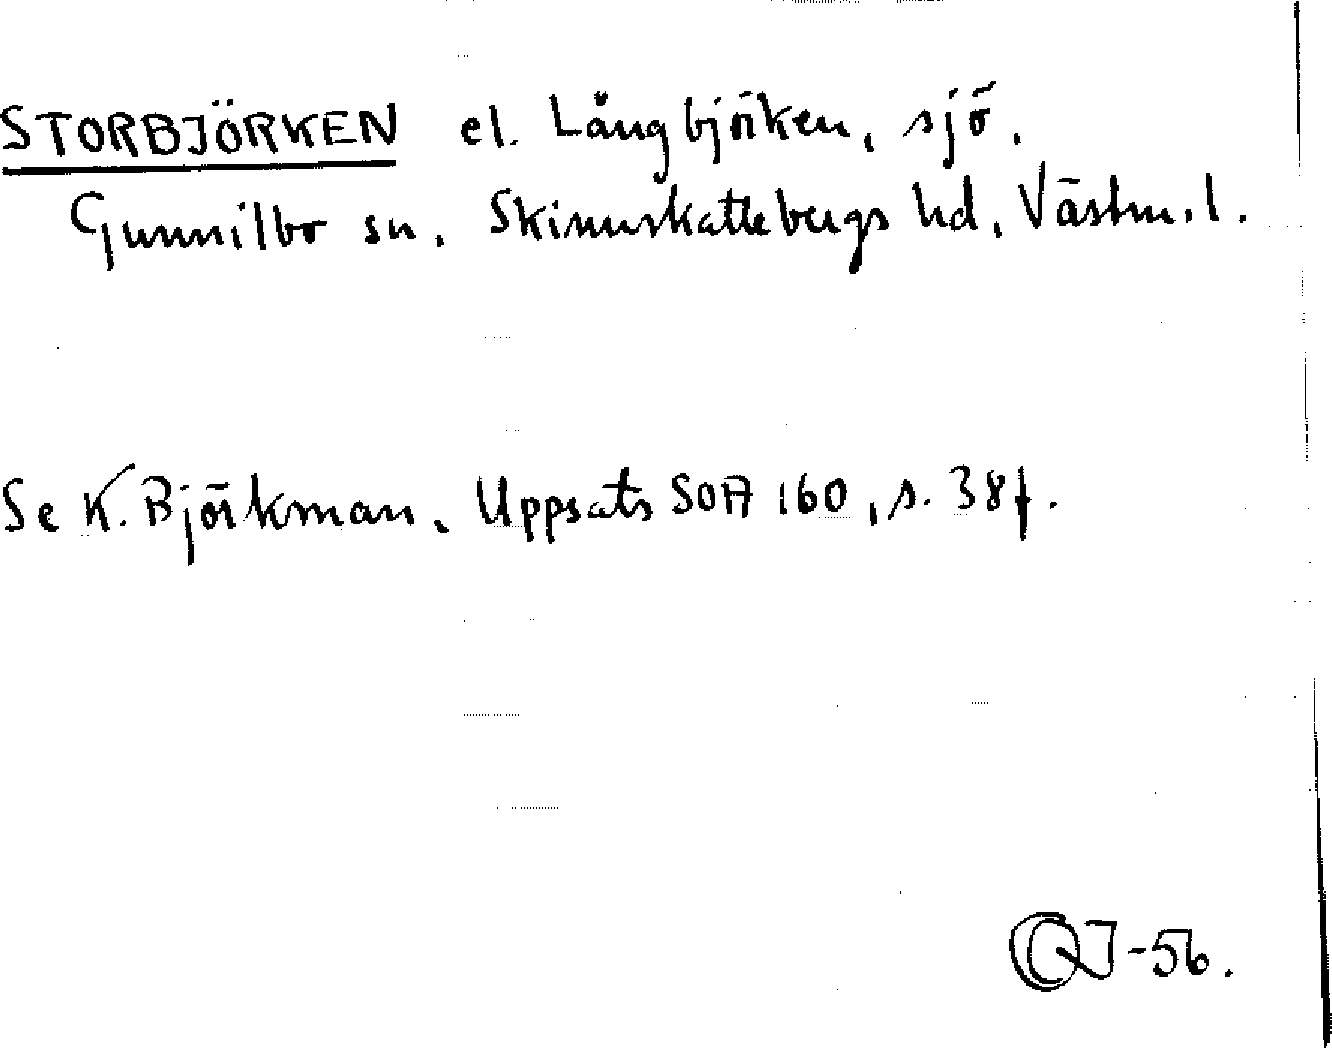 STORBJÖRKEN el. Långbjörken, sjö.
Gunnilbo sn, Skinnskattebergs hd, Västm.l.
Se K. Björkman, Uppsats SOA 160, s. 38f.
-56.